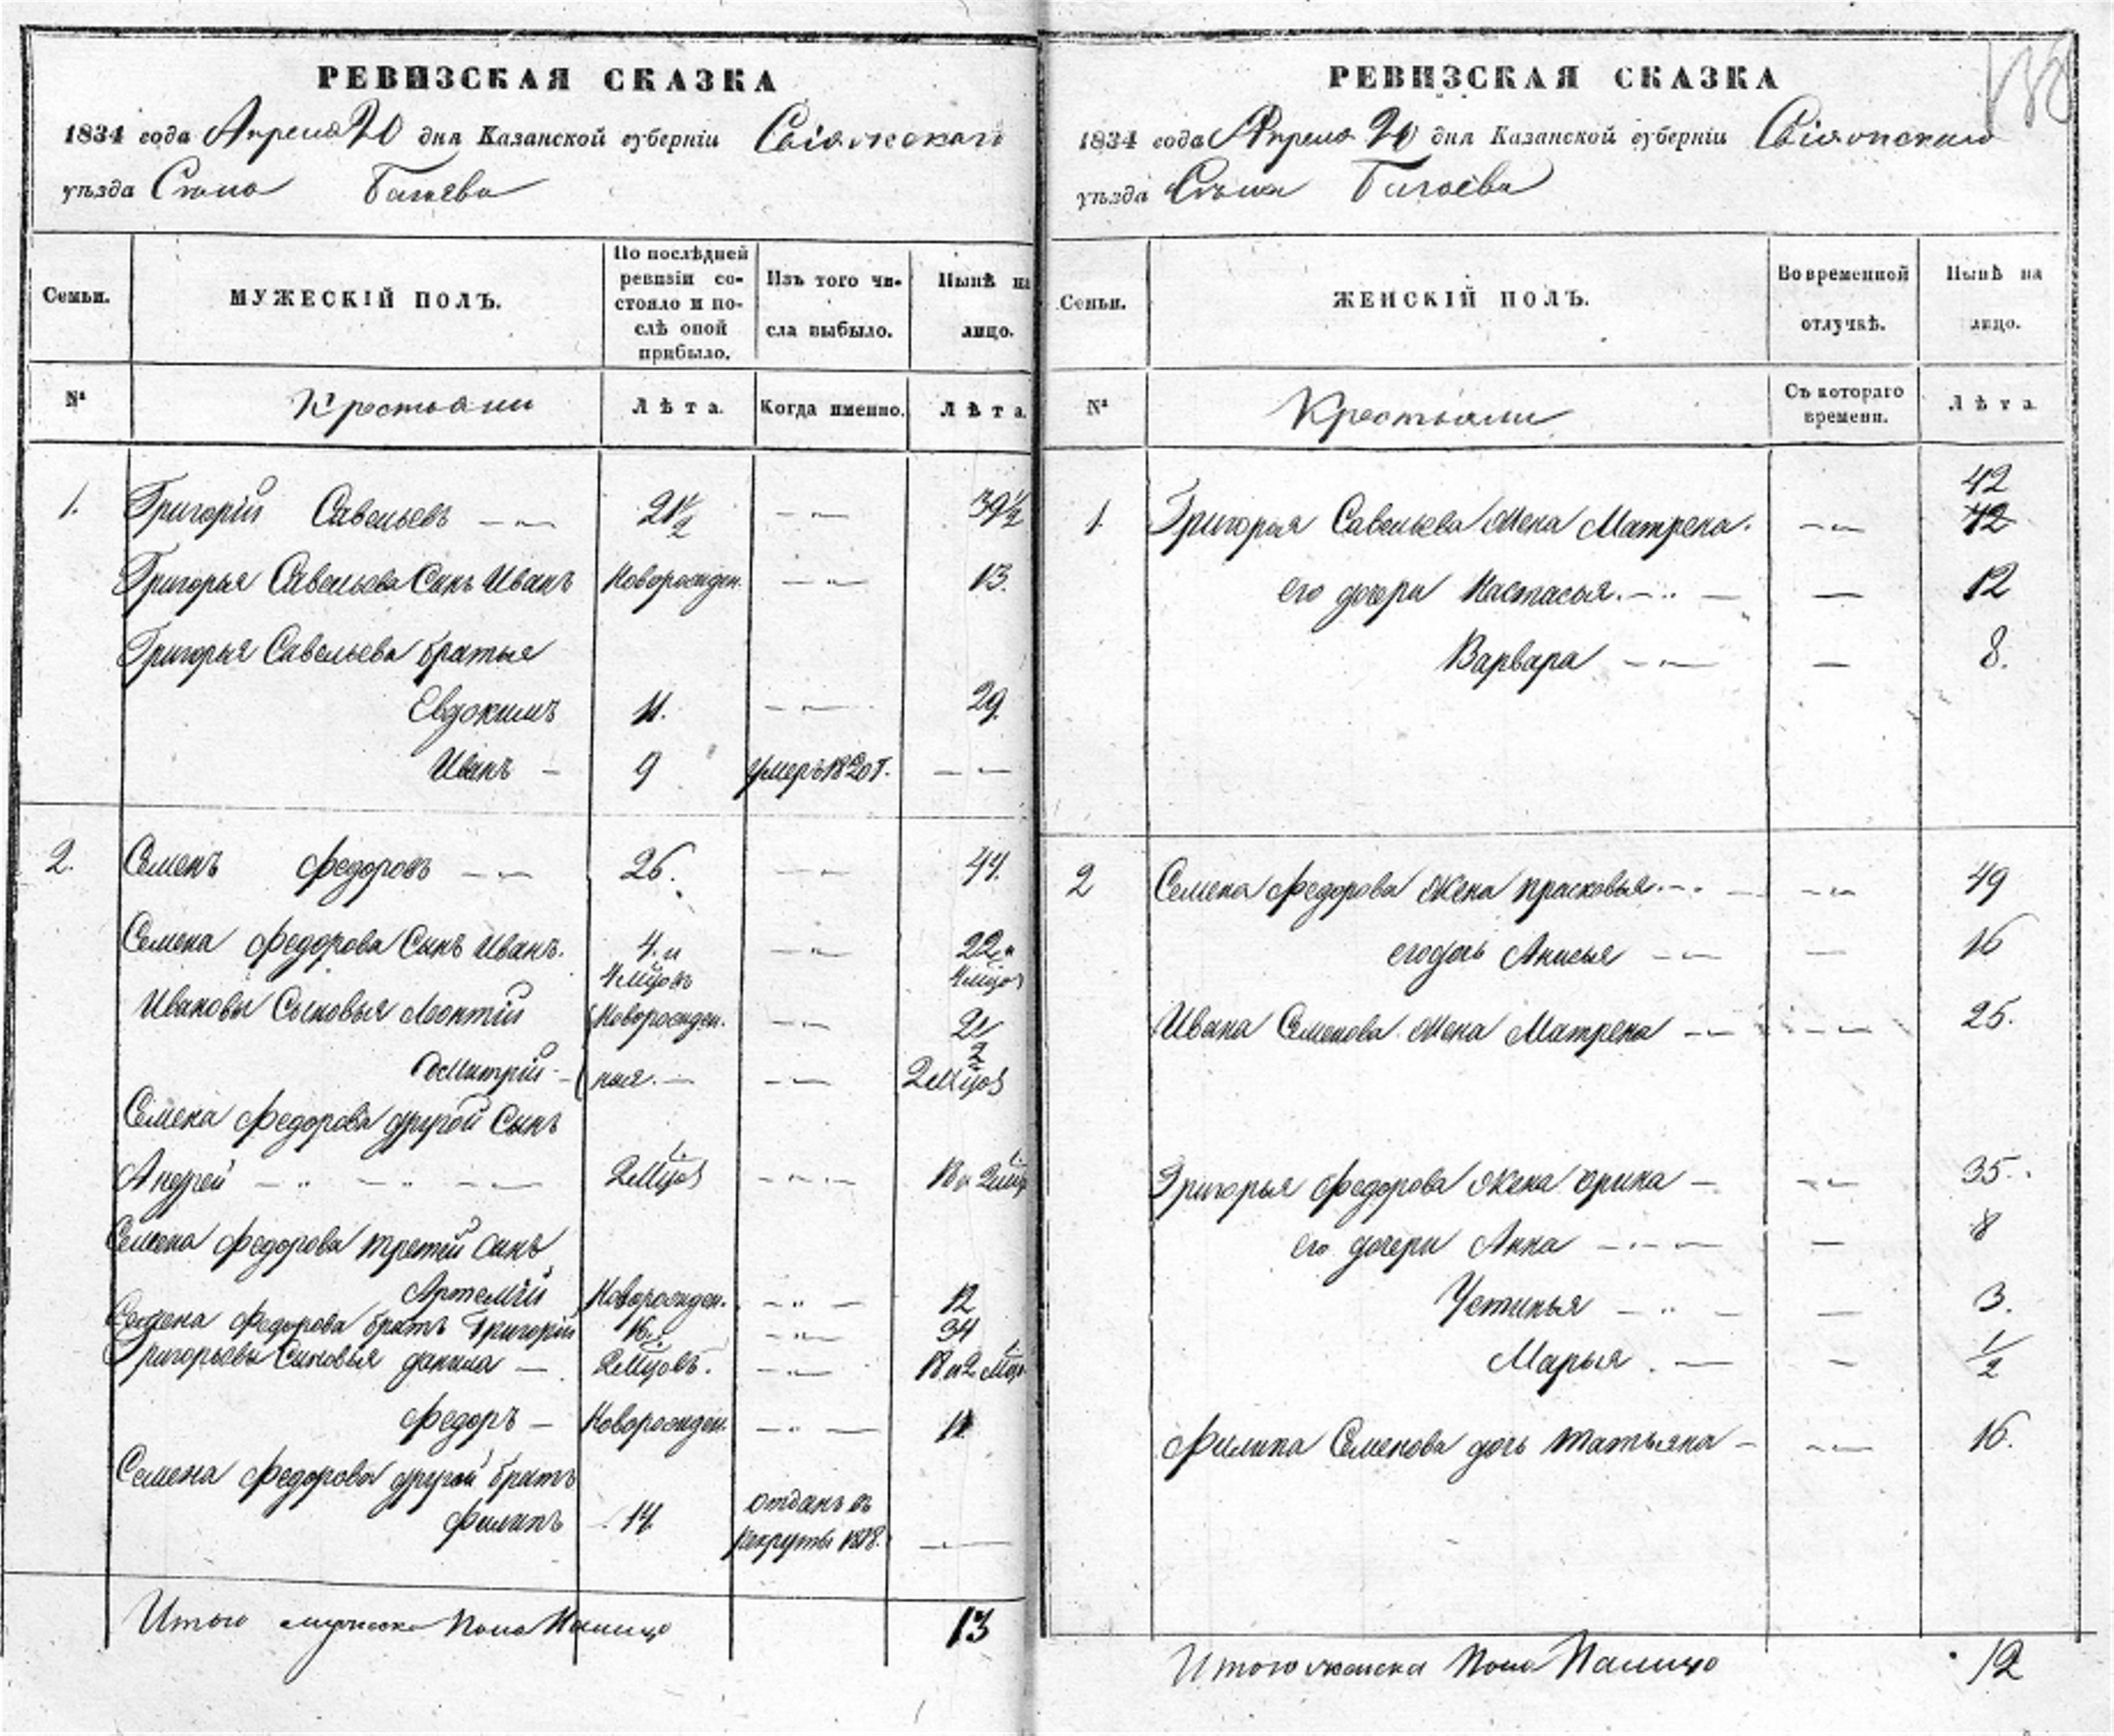 РЕВИЗСКАЯ СКАЗКА
1834 года Апреля 20 дня Казанской губерніи Свіяжского
уѣзда Села Багаева
Семьи.
МУЖЕСКІЙ ПОЛЪ.
По послѣдней ревизіи состояло и послѣ оной прибыло.
Изъ того числа выбыло.
Нынѣ на лицо.
№
Крестьяни
Лѣта.
Когда именно.
Лѣта
1. Григорій Савельевъ 21 1/2 39 1/2
Григорья Савельева Сынъ Иванъ Новорожден. 13.
Григорья Савельева братья
Евдокимъ 11. 29.
Иванъ 9 умеръ 1820 г.
2. Семенъ Федоровъ 26. 44.
Семена Федорова Сынъ Иванъ. 4. и 22 и
4 мцовъ 4 мцов
Ивановы Сыновья Леонтій Новорожден. 2 1/2
Дмитрій ныя. 2 мцов
Семена Федорова другой Сынъ
Андрей 2 мцов 18 и 2 мцо
Семена Федорова третей Сынъ
Артемій Новорожден. 12
Семена Федорова братъ Григорій 16. 34
Григорьевы Сыновья данила 2 мцовъ. 18 и 2 мцо
Федоръ Новорожден. 11
Семена Федорова другой братъ
Филипъ 14. отданъ въ
рекруты 1818.
Итого мужеска Пола Налицо 13
РЕВИЗСКАЯ СКАЗКА
1834 года Апреля 20 дня Казанской губерніи Свіяжскаго
уѣзда Села Багаева
Семьи.
ЖЕНСКІЙ ПОЛЪ.
Во временной отлучкѣ.
Нынѣ на лицо.
№
Крестьяни
Съ котораго времени.
Лѣта
42
1. Григорья Савельева Жена Матрена. 42
его дочери Настасья. 12
Варвара 8.
2 Семена Федорова Жена прасковья. 49
его дочь Анисья 16
Ивана Семенова Жена Матрена 25.
Григорья Федорова Жена орина 35.
его дочери Анна 8
Устинья 3.
Марья 1/2
Филипа Семенова дочь татьяна 16.
Итого женска Пола Налицо 12